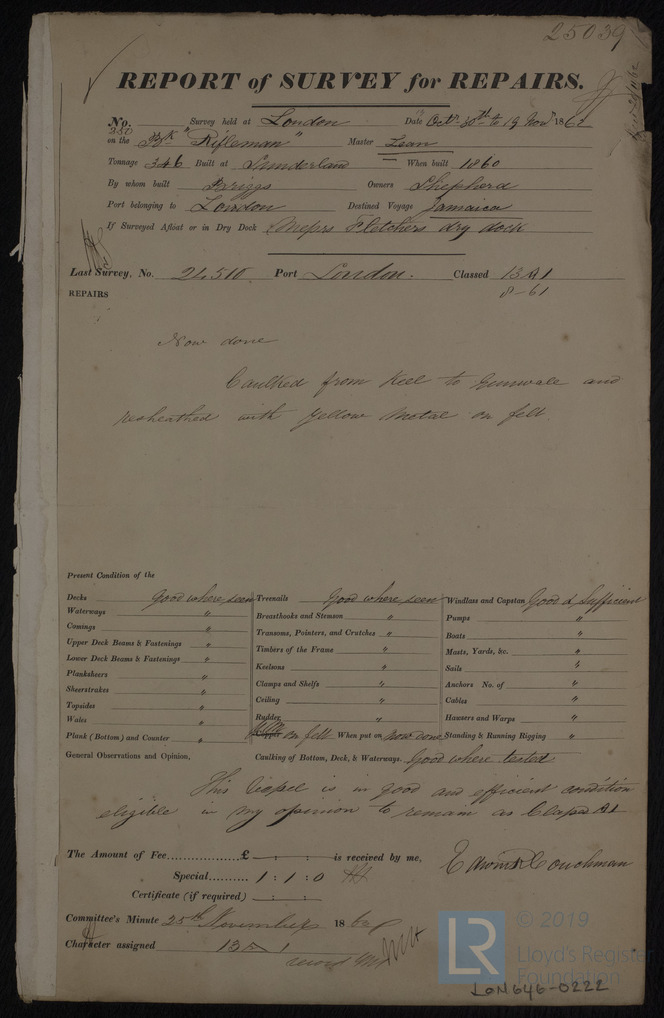 25039
REPORT of SURVEY for REPAIRS.
No. 250 Survey held at London Date Octr 30th to 19 Novr 1862
on the Bk "Rifleman" Master Lean
Tonnage 346 Built at Sunderland When built 1860
By whom built Briggs Owners Shepherd
Port belonging to London Destined Voyage Jamaica
If Surveyed Afloat or in Dry Dock Messrs Fletchers dry dock
Last Survey, No. 24,510 Port London. Classed 13 A 1
8-61
REPAIRS
Now done
Caulked from Keel to Gunwale and
resheathed with Yellow Metal on felt
Present Condition of the
Decks Good where seen Treenails Good where seen Windlass and Capstan Good & Sufficient
Waterways " Breasthooks and Stemson " Pumps "
Comings " Transoms, Pointers, and Crutches " Boats "
Upper Deck Beams & Fastenings " Timbers of the Frame " Masts, Yards, &c. "
Lower Deck Beams & Fastenings " Keelsons " Sails "
Planksheers " Clamps and Shelfs " Anchors No. of "
Sheerstrakes " Ceiling " Cables "
Topsides " Rudder " Hawsers and Warps "
Wales " on felt When put on now done Standing & Running Rigging "
Plank (Bottom) and Counter " Caulking of Bottom, Deck, & Waterways. Good where tested
General Observations and Opinion,
This Vessel is in good and efficient condition
eligible in my opinion to remain as Classed A1
The Amount of Fee £ : : is received by me,
Special 1 : 1 : 0
Edward Couchman
Certificate (if required) : :
Committee's Minute 25th November 1862
Character assigned 13 A 1
LR © 2019
Lloyd's Register
Foundation
LON646-0222